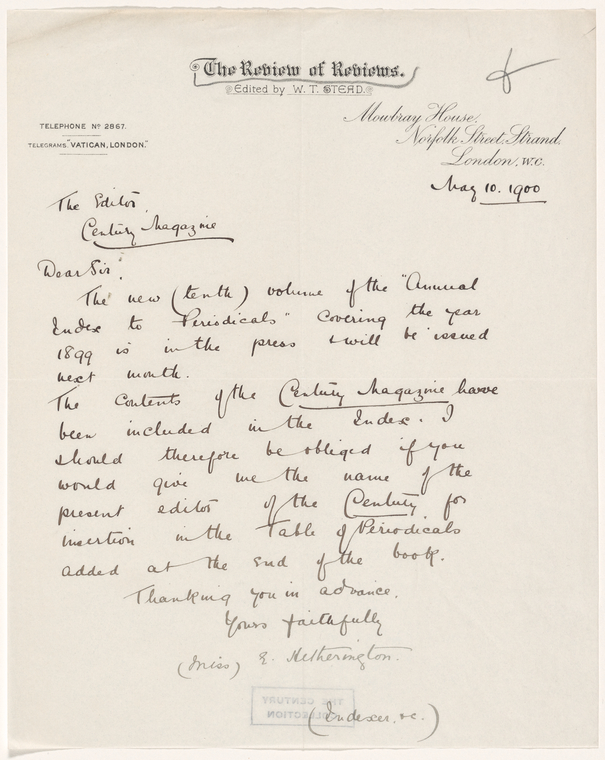 The Review of Reviews.
Edited by W. T. STEAD.
TELEPHONE No 2867.
TELEGRAMS, "VATICAN, LONDON."
Mowbray House,
Norfolk Street, Strand,
London, W.C.
May 10. 1900
The Editor,
Century Magazine
Dear Sir,
The new (tenth) volume of the "Annual
Index to Periodicals" covering the year
1899 is in the press & will be issued
next month.
The contents of the Century Magazine have
been included in the Index. I
should therefore be obliged if you
would give me the name of the
present editor of the Century for
insertion in the Table of Periodicals
added at the end of the book.
Thanking you in advance.
Yours faithfully
(Miss) E. Hetherington.
THE CENTURY
COLLECTION
(Indexer, &c.)